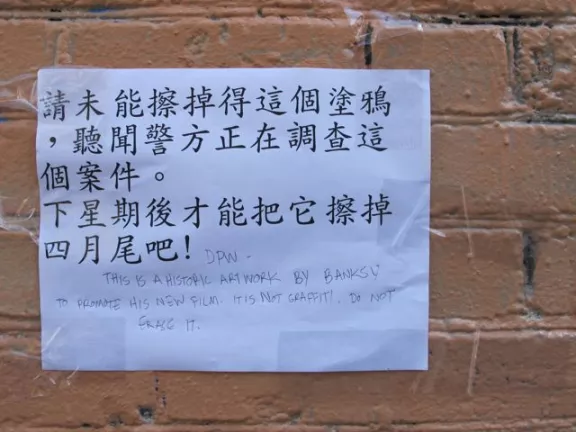 請未能擦掉得這個塗鴉
，聽聞警方正在調查這
個案件。
下星期後才能把它擦掉
四月尾吧!
DPW -
THIS IS A HISTORIC ART WORK BY BANKSY
TO PROMOTE HIS NEW FILM. IT IS NOT GRAFFITI. DO NOT
ERASE IT.